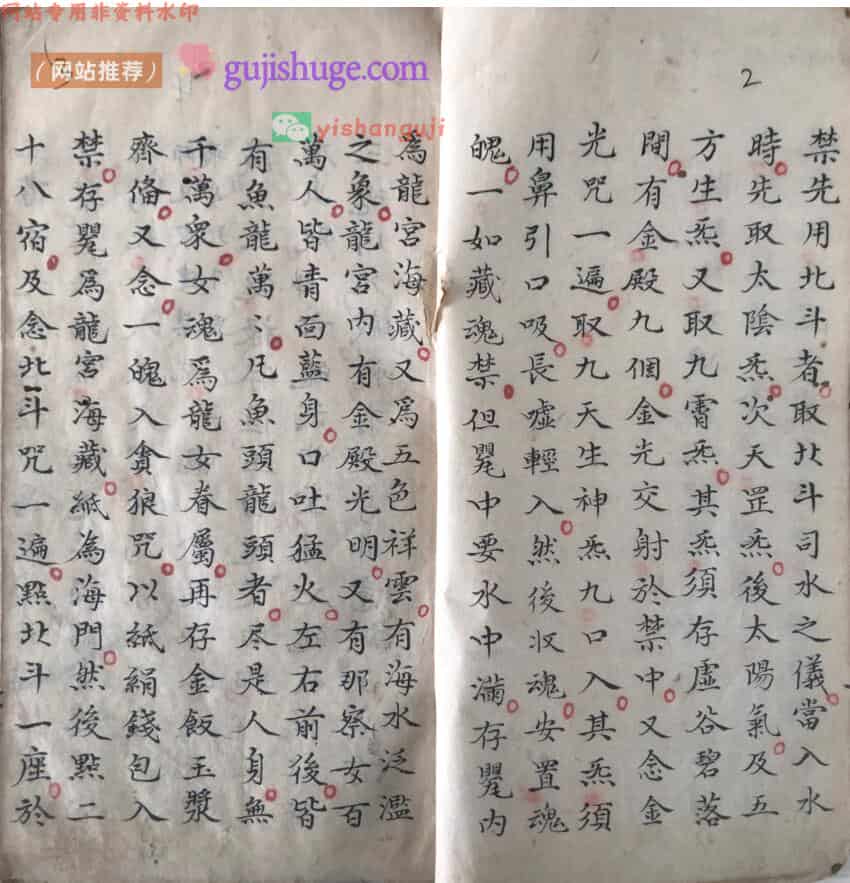 网站专用非资料水印
（网站推荐）
gujishuge.com
yishanguji
2
禁先用北斗者取北斗司水之儀當入水
時先取太陰炁次天罡炁後太陽氣及五
方生炁又取九霄炁其炁須存虛谷碧落
間有金殿九個金光交射於禁中又念金
光咒一遍取九天生神炁九口入其炁須
用鼻引口吸長噓輕入然後收魂安置魂
魄一如藏魂禁但甖中要水中滿存甖內
3
為龍宮海藏又為五色祥雲有海水泛濫
之象龍宮内有金殿光明又有那察女百
萬人皆青面藍身口吐猛火左右前後皆
有魚龍萬〻凡魚頭龍頭者尽是人身無
千萬衆女魂為龍女眷屬再存金飯玉漿
齊俻又念一魄入貪狼咒以紙絹錢包入
禁存甖為龍宮海藏紙為海門然後點二
十八宿及念北斗咒一遍點北斗一座於